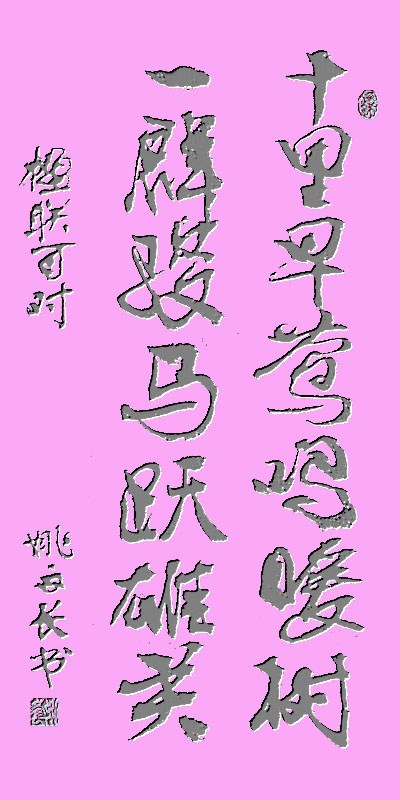 十里早莺鸣暖树
一群骏马跃雄关
楹联可时
长书